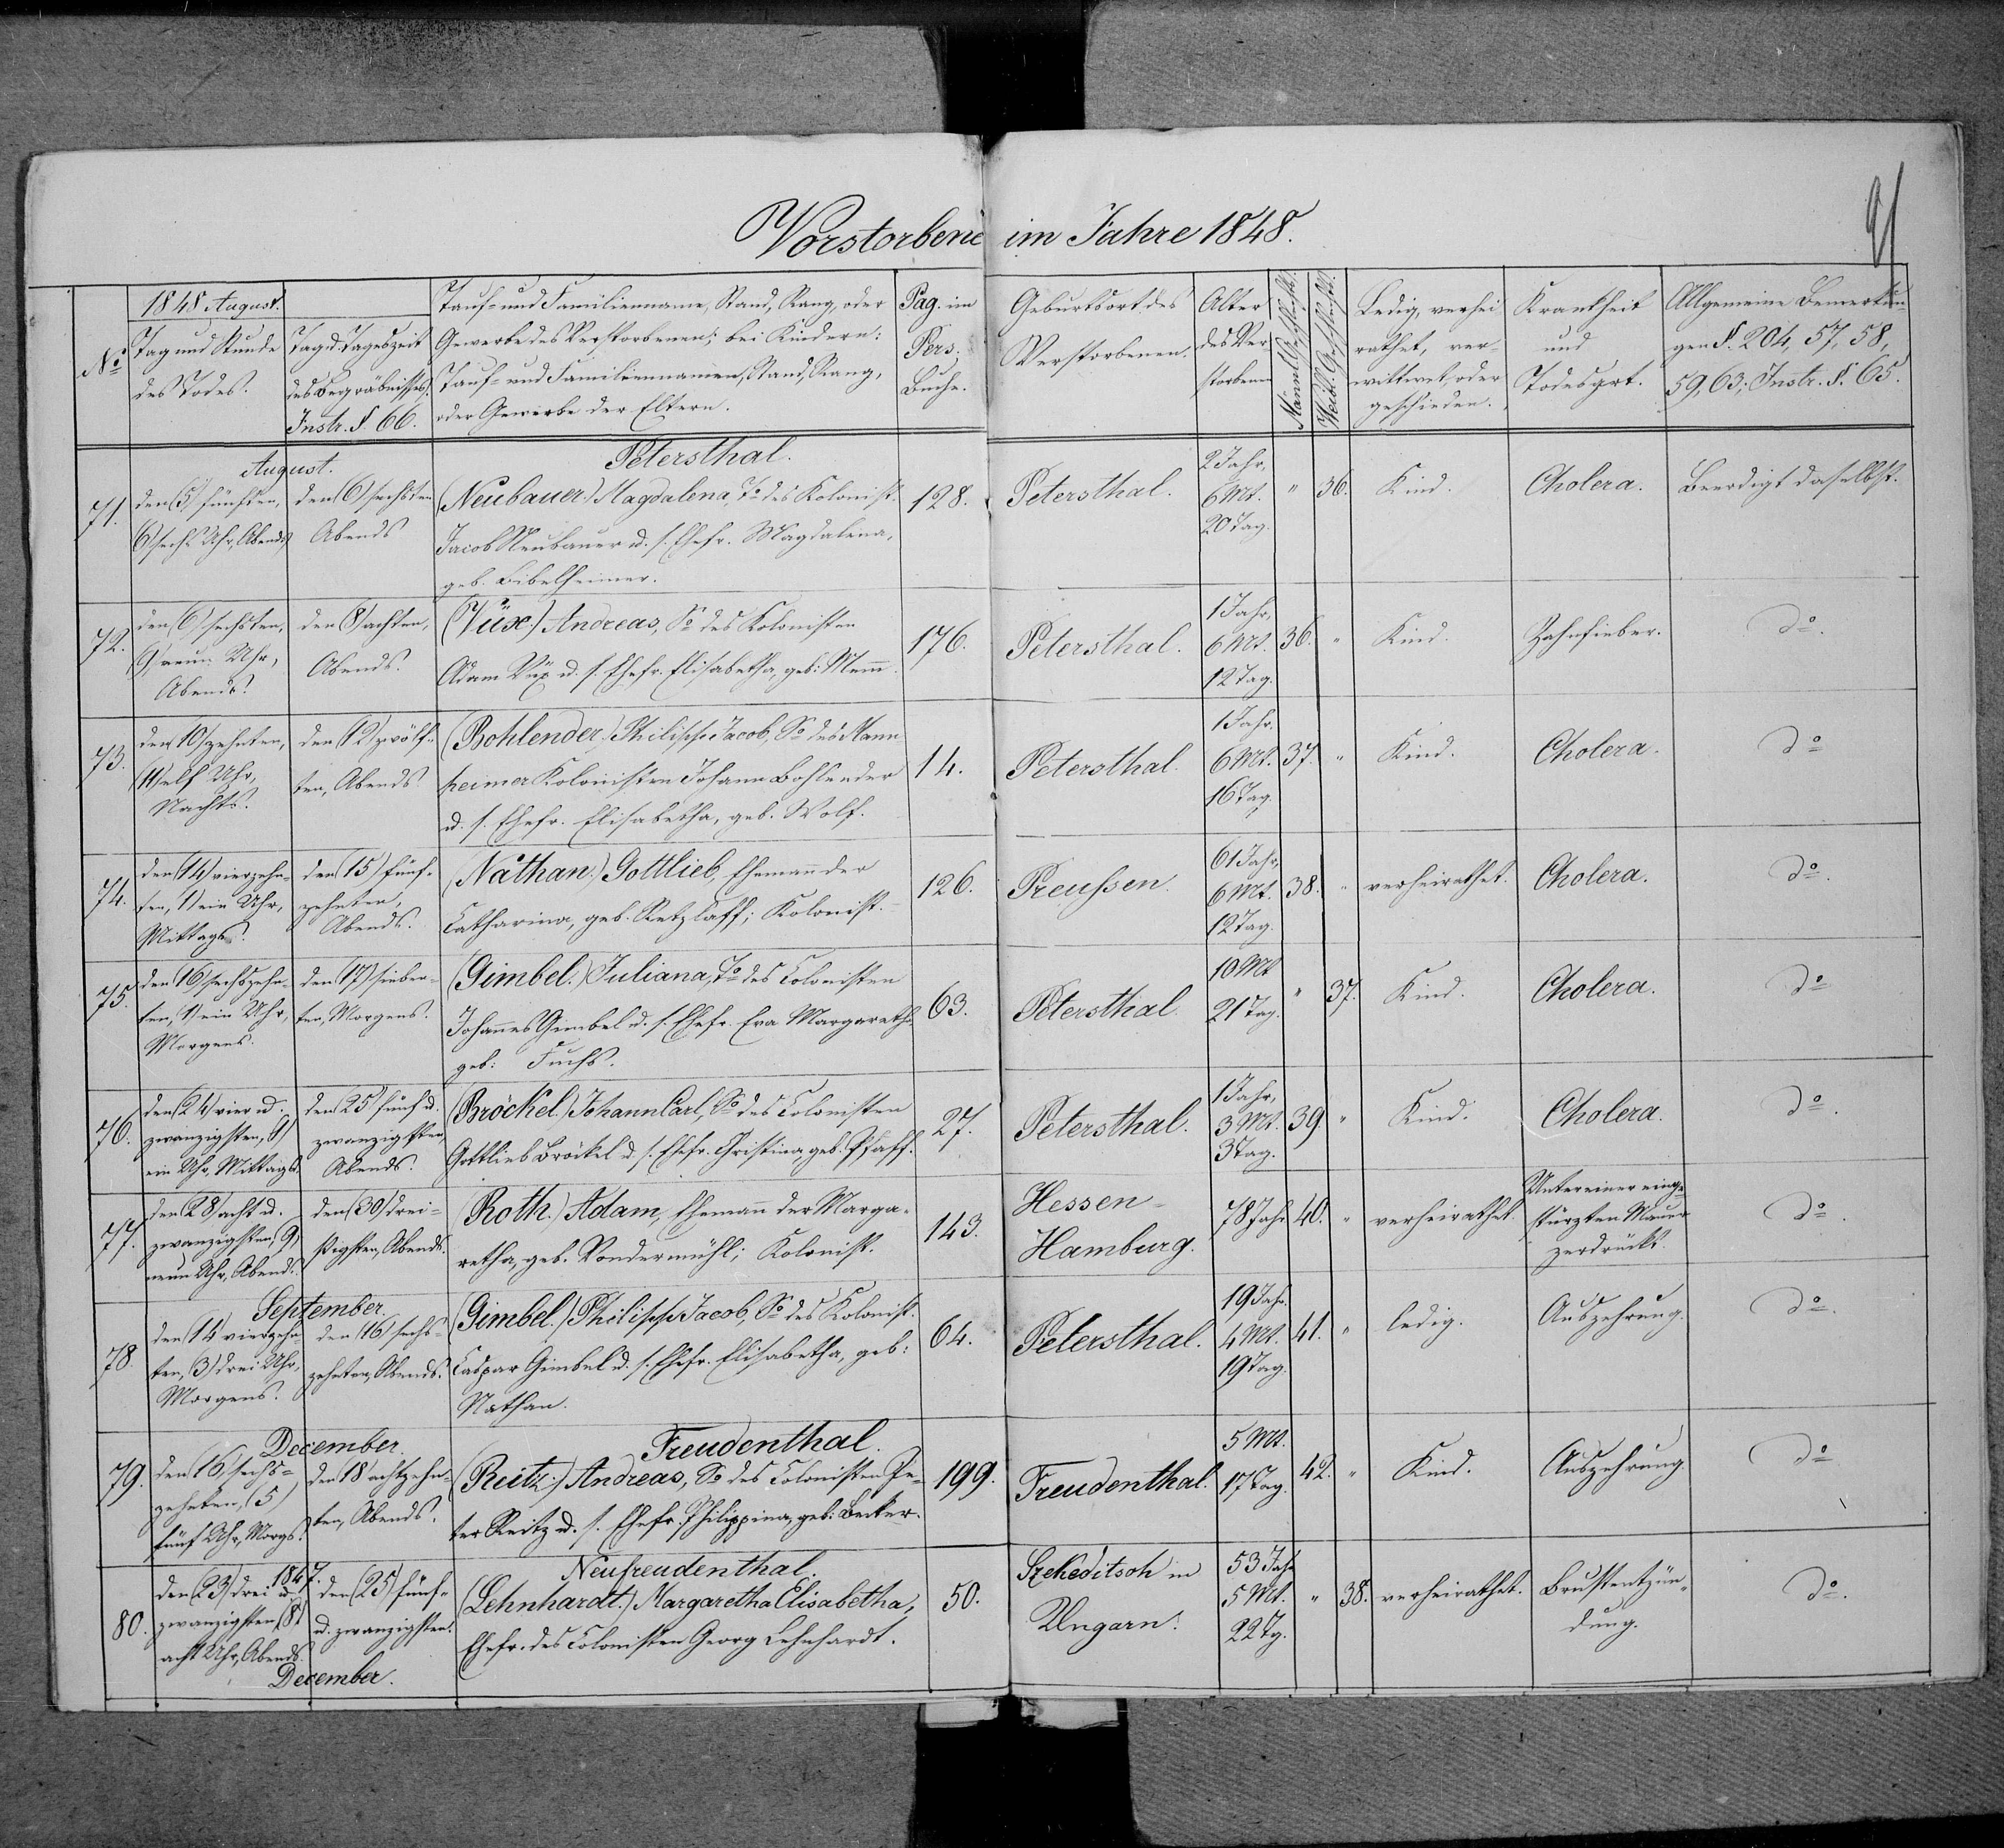 Vorstorbene im Jahre 1848.
21
1848 August.
No
Tag und Stunde
des Todes.
Tag d. Tageszeit
des Begräbnisses.
Instr. §. 66.
Tauf- und Familienname, Stand, Rang, oder
Gewerbe des Verstorbenen; bei Kindern:
Tauf- und Familiennamen, Stand, Rang,
oder Gewerbe der Eltern.
Pag. im
Pers.
Buche.
Geburtsort des
Verstorbenen.
Alter
des Ver-
storbenen
Männl. Geschlecht.
Weibl. Geschlecht.
Ledig, verhei
rathet, ver-
wittwet, oder
geschieden.
Krankheit
und
Todesart.
Allgemeine Bemerkun-
gen §. 204, 57, 58,
59, 63; Instr. §. 65.
August.
Petersthal.
71.
den (5) fünften,
6) sechs Uhr, Abends
den (6) sechsten
Abends
(Neubauer.) Magdalena, To des Kolonist.
Jacob Neubauer u. s. Ehefr. Magdalena,
geb. Bibelheimer.
128.
Petersthal.
2 Jahr,
6 Mt.
20 Tag.
"
36.
Kind.
Cholera.
Beerdigt daselbst.
72.
den (6) sechsten,
9) neun Uhr,
Abends.
den (8) achten,
Abends.
(Vüx.) Andreas, So des Kolonisten
Adam Vüx u. s. Ehefr. Elisabetha, geb: Memm.
176.
Petersthal.
1 Jahr,
6 Mt.
12 Tag.
36.
"
Kind.
Zahnfieber.
do.
73.
den (10) zehnten,
(11) elf Uhr,
Nachts.
den (12) zwölf-
ten, Abends
(Bohlender.) Philipp Jacob, So des Mann
heimer Kolonisten Johann Bohlender
u. s. Ehefr. Elisabetha, geb. Wolf.
14.
Petersthal.
1 Jahr.
6 Mt.
16 Tag.
37.
"
Kind.
Cholera.
do
74.
den (14) vierzehn-
ten, 1) ein Uhr,
Mittags.
den (15) fünf-
zehnten,
Abends.
(Nathan.) Gottlieb, Ehemann der
Catharina, geb. Retzlaff; Kolonist.
126.
Preussen.
61 Jahr,
6 Mt.
12 Tag.
38.
"
verheirathet.
Cholera.
do.
75.
den (16) sechszehn-
ten, (1) ein Uhr,
Morgens.
den (17) sieben-
ten, Morgens.
(Gimbel.) Juliana, To des Colonisten
Johannes Gimbel u. s. Ehefr. Eva Margaretha
geb: Fuchs.
63.
Petersthal.
10 Mt
21 Tag.
"
37.
Kind.
Cholera.
do
76.
den (24) vier u.
zwanzigsten, 1)
ein Uhr, Mittags.
den (25) fünf u.
zwanzigsten
Abends.
(Bröckel) Johann Carl, So des Colonisten
Gottlieb Bröckel u. s. Ehefr. Christina, geb. Pfaff.
27.
Petersthal.
1 Jahr,
3 Mt.
3 Tag.
39.
"
Kind.
Cholera.
do.
77.
den (28) acht u.
zwanzigsten, 9)
neun Uhr, Abends.
den (30) drei-
ßigsten, Abends.
(Roth.) Adam, Ehemann der Marga-
retha, geb. Vondermühl; Kolonist.
143.
Hessen-
Hamburg.
78 Jahr
40.
"
verheirathet.
Unter einer einge-
stürzten Mauer
zerdrückt.
do.
September.
78.
den 14 vierzehn-
ten, 3) drei Uhr,
Morgens.
den (16) sechs-
zehnten, Abends.
(Gimbel.) Philipp Jacob, So des Kolonist.
Caspar Gimbel u. s. Ehefr. Elisabetha, geb:
Nathan.
64.
Petersthal.
19 Jahr.
4 Mt.
19 Tag.
41.
"
ledig.
Auszehrung.
do.
December.
Freudenthal.
79.
den 16, sechs-
zehnten, (5)
fünf Uhr, Morgs.
den 18 achtzehn-
ten, Abends.
(Reitz.) Andreas, So des Colonisten Pe-
ter Reitz u. s. Ehefr. Philippina, geb: Becker.
199.
Freudenthal.
5 Mt.
17 Tag.
42.
"
Kind.
Auszehrung.
do
1847.
Neufreudenthal.
80.
den (23) drei und
zwanzigsten, (8)
acht Uhr, Abends.
den (25) fünf-
u. zwanzigsten.
December.
(Lehnhardt.) Margaretha Elisabetha,
Ehefr. des Colonisten Georg Lehnhardt.
50.
Szekeditsch in
Ungarn.
53 Jahr
5 Mt.
22 Tg.
"
38.
verheirathet.
Brustentzün-
dung.
do.